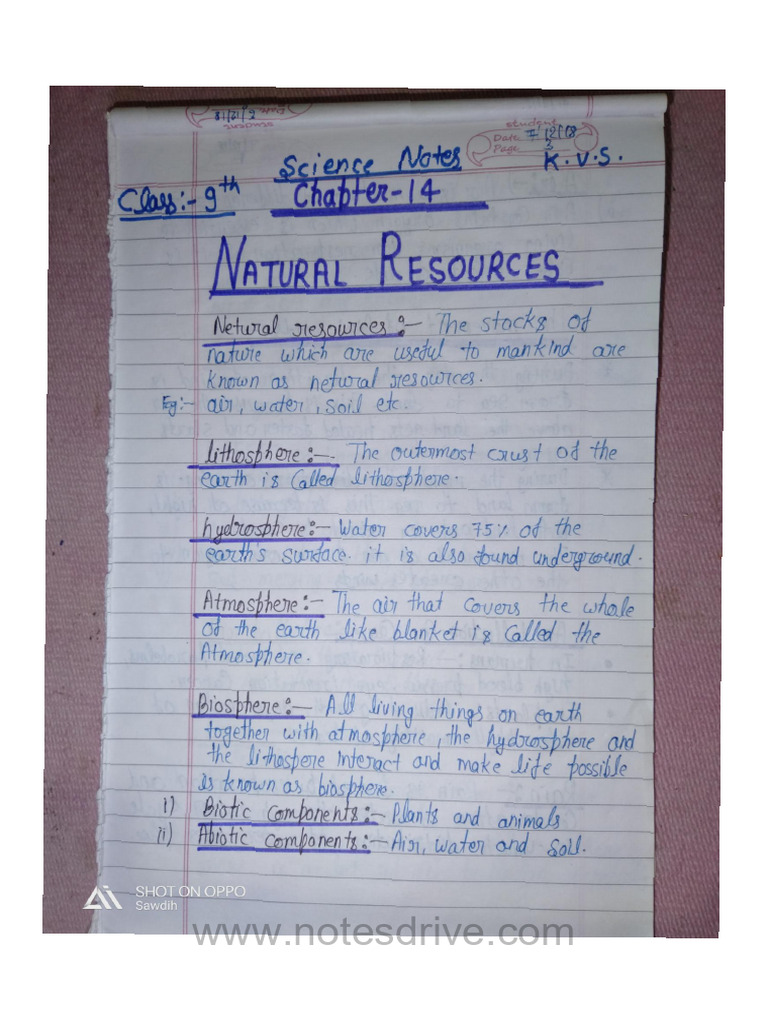 student
Date 7/12/18
Page 3
K.V.S.
Science Notes
Class:- 9th Chapter-14
NATURAL RESOURCES
Netural resources:- The stocks of
nature which are useful to mankind are
known as netural resources.
Eg:- air, water, soil etc.
lithosphere:- The outermost crust of the
earth is called lithosphere.
hydrosphere:- Water covers 75% of the
earth's surface. it is also found underground.
Atmosphere:- The air that covers the whole
of the earth like blanket is called the
Atmosphere.
Biosphere:- All living things on earth
together with atmosphere, the hydrosphere and
the lithospere interact and make life possible
is known as biosphere.
i) Biotic components:- Plants and animals
ii) Abiotic components:- Air, water and soil.
SHOT ON OPPO
Sawdih
www.notesdrive.com